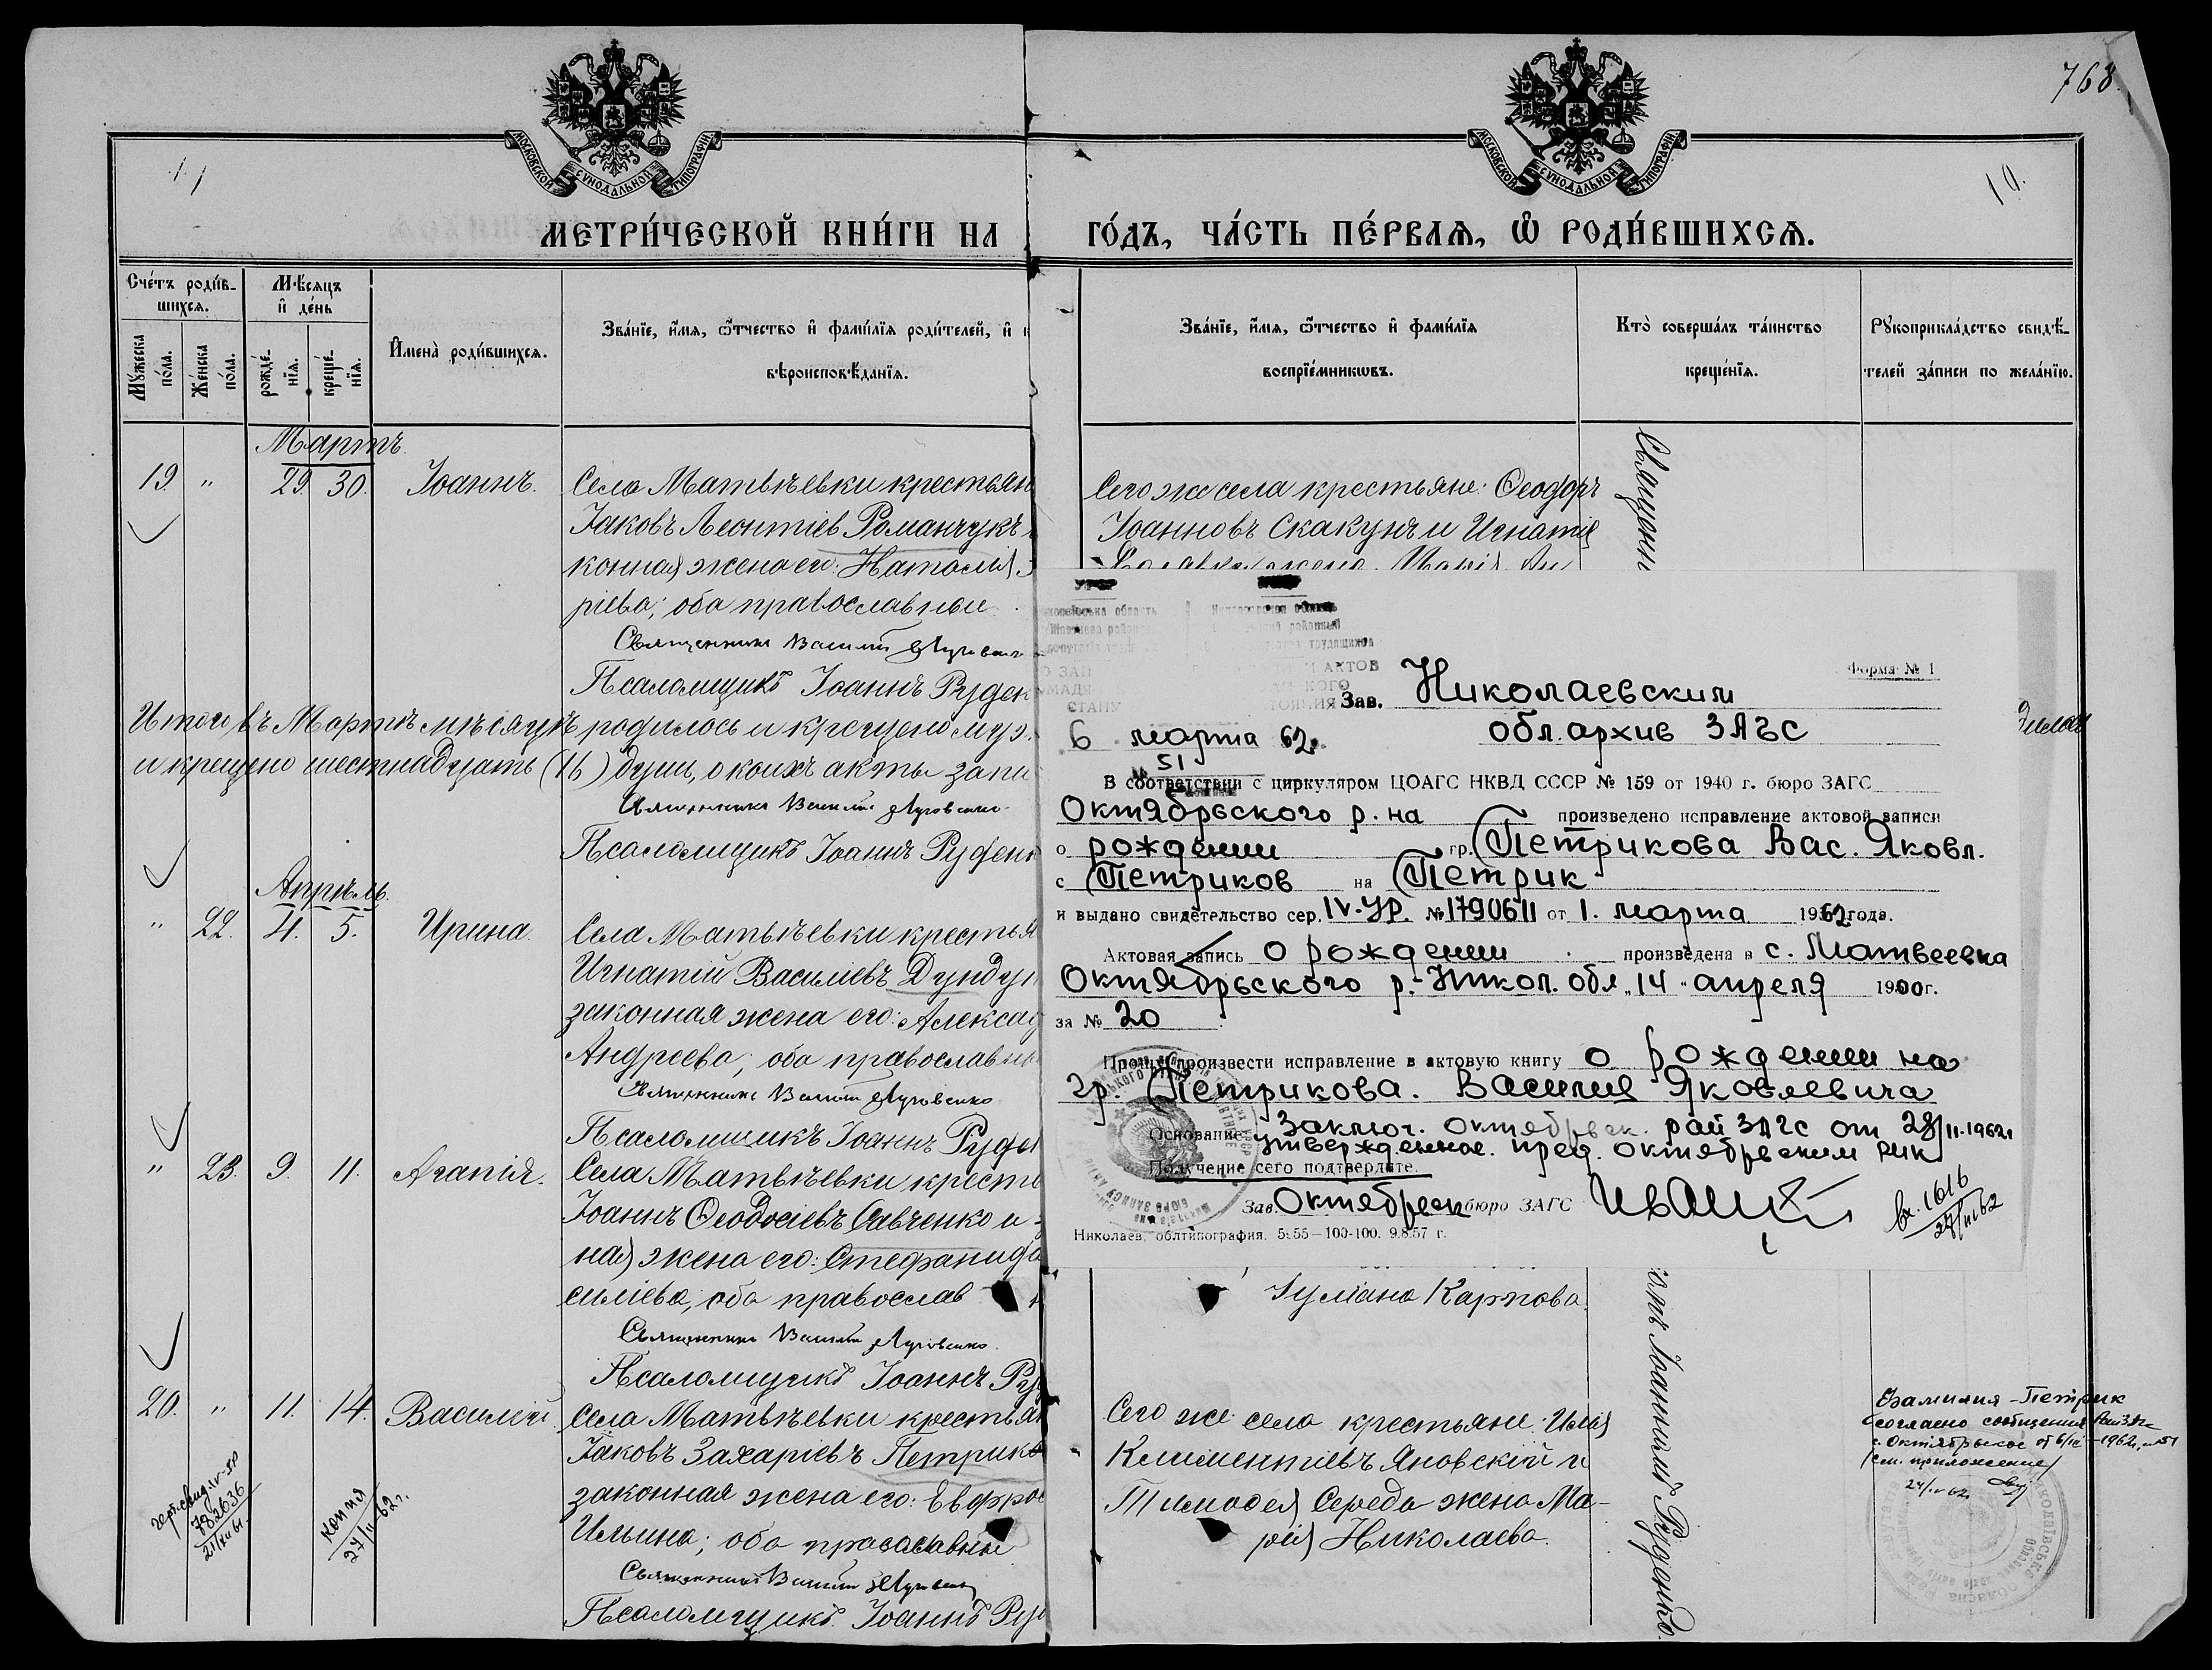 768.
МОСКОВСКОЙ СѴНОДАЛЬНОЙ ТИПОГРАФІИ
МОСКОВСКОЙ СѴНОДАЛЬНОЙ ТИПОГРАФІИ
10.
МЕТРИ́ЧЕСКОЙ КНИ́ГИ НА
ГО́ДЪ, ЧА́СТЬ ПЕ́РВАѦ, Ѡ҆ РОДИ́ВШИХСѦ.
Сче́тъ роди́в-
шихсѧ.
Мѣ́сѧцъ
и҆ де́нь
Мꙋ́жеска
по́ла.
Же́нска
по́ла.
рожде́-
нїѧ.
креще́-
нїѧ.
И҆мена̀ роди́вшихсѧ.
Зва́нїе, и҆́мѧ, ѻ҆́тчество и҆ фами́лїѧ роди́телей, и҆ к
вѣроисповѣ́данїѧ.
Зва́нїе, и҆́мѧ, ѻ҆́тчество и҆ фами́лїѧ
воспрїе́мникѡвъ.
Кто̀ соверша́лъ та́инство
креще́нїѧ.
Рꙋкоприкла́дство свидѣ́-
телей за́писи по жела́нїю.
Мартъ
19. " 29. 30. Іоаннъ.
Села Матвѣевки крестьян
Іаковъ Леонтіев Романчукъ
конная жена его: Наталія
ріева; оба православные
Священникъ Василій Луговенко
Псаломщикъ Іоаннъ Руден
Сего же села крестьяне: Ѳеодоръ
Іоанновъ Скакунъ и Игнатія
Священни
Итого въ Мартѣ мѣсяцѣ родилось и крещено муж.
и крещено шестнадцать (16) душ, о коихъ акты запи
Священникъ Василій Луговенко
Псаломщикъ Іоаннъ Руденк
Апрѣль
" 22. 4. 5. Ирина.
Села Матвѣевки крестья
Игнатій Василіевъ Дундук
законная жена его: Александ
Андреева; оба православны
Священникъ Василій Луговенко
Псаломщикъ Іоаннъ Руден
" 23. 9. 11. Агапія.
Села Матвѣевки кресть
Іоаннъ Ѳеодосіевъ Савченко и
ная жена его: Стефанида
силіева; оба православ
Священникъ Василій Луговенко.
Псаломщикъ Іоаннъ Ру
Іуліана Карпова.
20. " 11. 14. Василій
Села Матвѣевки крестьян
Іаковъ Захаріевъ Петрико
законная жена его: Евфрос
Ильина; оба православные
Священникъ Василій Луговенко
Псаломщикъ Іоаннъ Руд
782636
21/XII 61.
копия
27/II-62г.
Сего же села крестьяне: Илія
Климентіевъ Яновскій и
Тимоѳея Середа жена Ма-
рія Николаева.
Іоаннъ Руденко.
Фамилия - Петрик
согласно сообщения РайЗАГС
с. Октябрьское от 6/III-1962г. №51
/см. приложение/
УРСР
область
трудящихся
Форма № 1
Зав. Николаевским
обл. архив ЗАГС
6 марта 62г.
№ 51
В соответствии с циркуляром ЦОАГС НКВД СССР № 159 от 1940 г. бюро ЗАГС
Октябрьского р. на произведено исправление актовой записи
о рождении гр. Петрикова Вас. Яковл.
с Петриков на Петрик
и выдано свидетельство сер. IV-УР. № 1790611 от 1. марта 1962 года.
Актовая запись о рождении произведена в с. Матвеевка
Октябрьского р.- Никол. обл. „14" апреля 1900 г.
за № 20
Прошу произвести исправление в актовую книгу о рождении на
гр. Петрикова. Василия Яковлевича
Основание: Заключ. Октябрьск. рай ЗАГС от 28/II-1962г
утвержденное. пред. Октябрьским РИК
Получение сего подтвердите.
Зав. Октябрьск бюро ЗАГС
вх. 1616
Николаев, облтипография. 5155—100-100. 9.8.57 г.